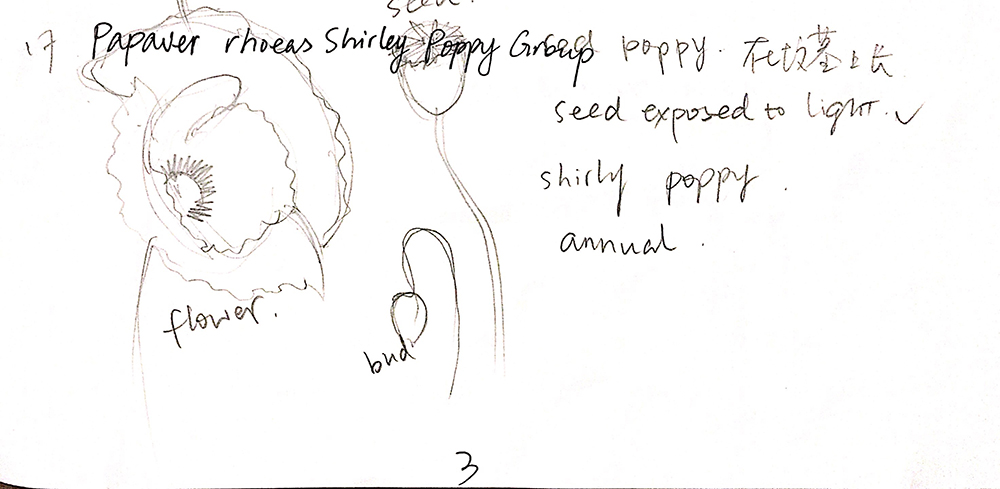 seed.
17 Papaver rhoeas Shirley Poppy Group poppy. 在坟墓上长
seed exposed to light. ✓
shirly poppy.
annual.
flower.
bud
3